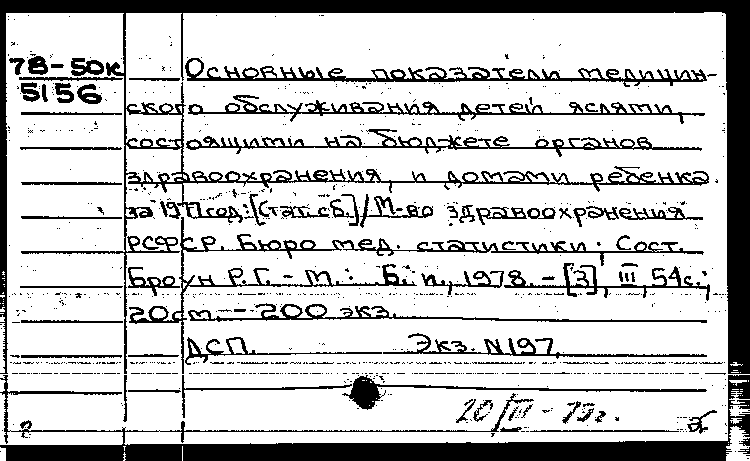 78-50к
5156
Основные показатели медицин-
ского обслуживания детей яслями,
состоящими на бюджете органов
здравоохранения, и домами ребенка
за 1977 год: [Стат. сб.] / М-во здравоохранения
РСФСР. Бюро мед. статистики; Сост.
Броун Р.Г. - М.: Б. и., 1978. - [3], III, 54с.;
20см. - 200 экз.
ДСП. Экз. N197.
20/III - 79г.